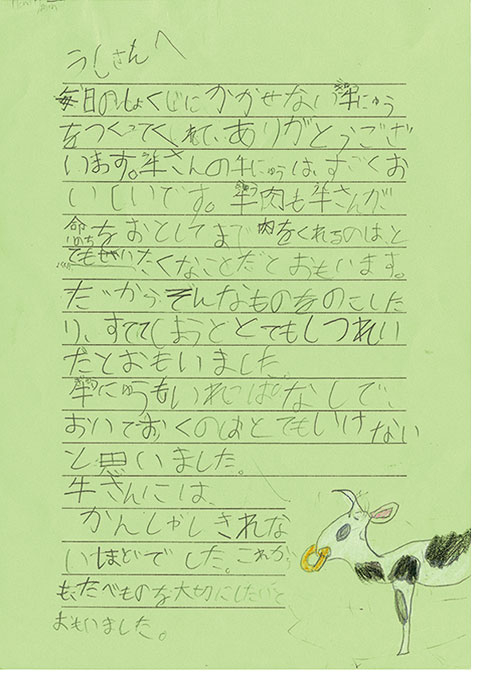 うしさんへ
毎日のしょくじにかかせない牛にゅう
をつくってくれて、ありがとうござ
います。牛さんの牛にゅうは、すごくお
いしいです。牛肉も牛さんが
命をおとしてまで肉をくれるのは、と
てもぜいたくなことだとおもいます。
だから、そんなものをのこした
り、すててしまうととてもしつれい
だとおもいました。
牛にゅうもいれっぱなしで、
おいておくのはとてもいけない
と思いました。
牛さんには、
かんしゃしきれな
いほどでした。これから
も、たべものを大切にしたいと
おもいました。